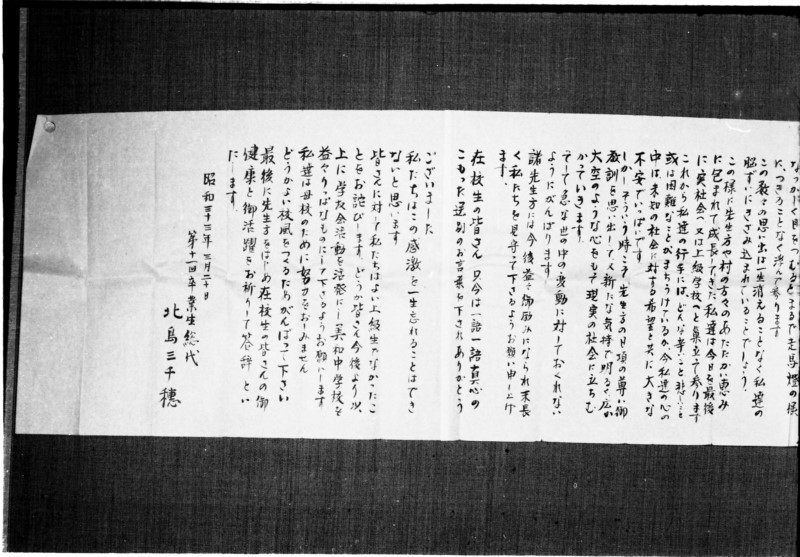 なつかしく目をつむるところで走馬燈の様
に、つきることなく浮んで参ります
この数々の思い出は一生消えることなく私達の
脳ずいにきざみ込まれていることでしょう。
この様に先生方や村の方々のあたたかい恵み
に包まれて成長してきた私達は今日を最後
に実社会へ又は上級学校へと巣立て参ります
これから私達の行手には、どんな辛いこと悲しいこと
或は困難なことがまちうけているか、今私達の心の
中は、未知の社会に対する希望と共に大きな
不安でいっぱいです
しかしそういう時こそ先生方の日頃の尊い御
教訓を思い出して、新たな気持で明るく広い
大空のような心をもって現実の社会に立ちむ
かっていきます
そして急な世の中の変動に対しておくれない
ようにがんばります
諸先生方には今後益々御励みになられ末長
く私たちを見守って下さるようお願い申し上げ
ます、
在校生の皆さん 只今は一語一語真心の
こもった送別のお言葉を下されありがとう
ございました
私たちはこの感激を一生忘れることはでき
ないと思います
皆さんに対して私たちはよい上級生でなかったこ
とをお詫びします、どうか皆さん今後より以
上に学友会活動を活発にし美和中学校を
益々りっぱなものにして下さるようお願いします
私達は母校のために努力をおしみません
どうかよい校風をつくるためがんばって下さい
最後に先生方をはじめ在校生の皆さんの御
健康と御活躍をお祈りして答辞とい
たします。
昭和三十三年三月二十日
第十一回卒業生総代
北島三千穂